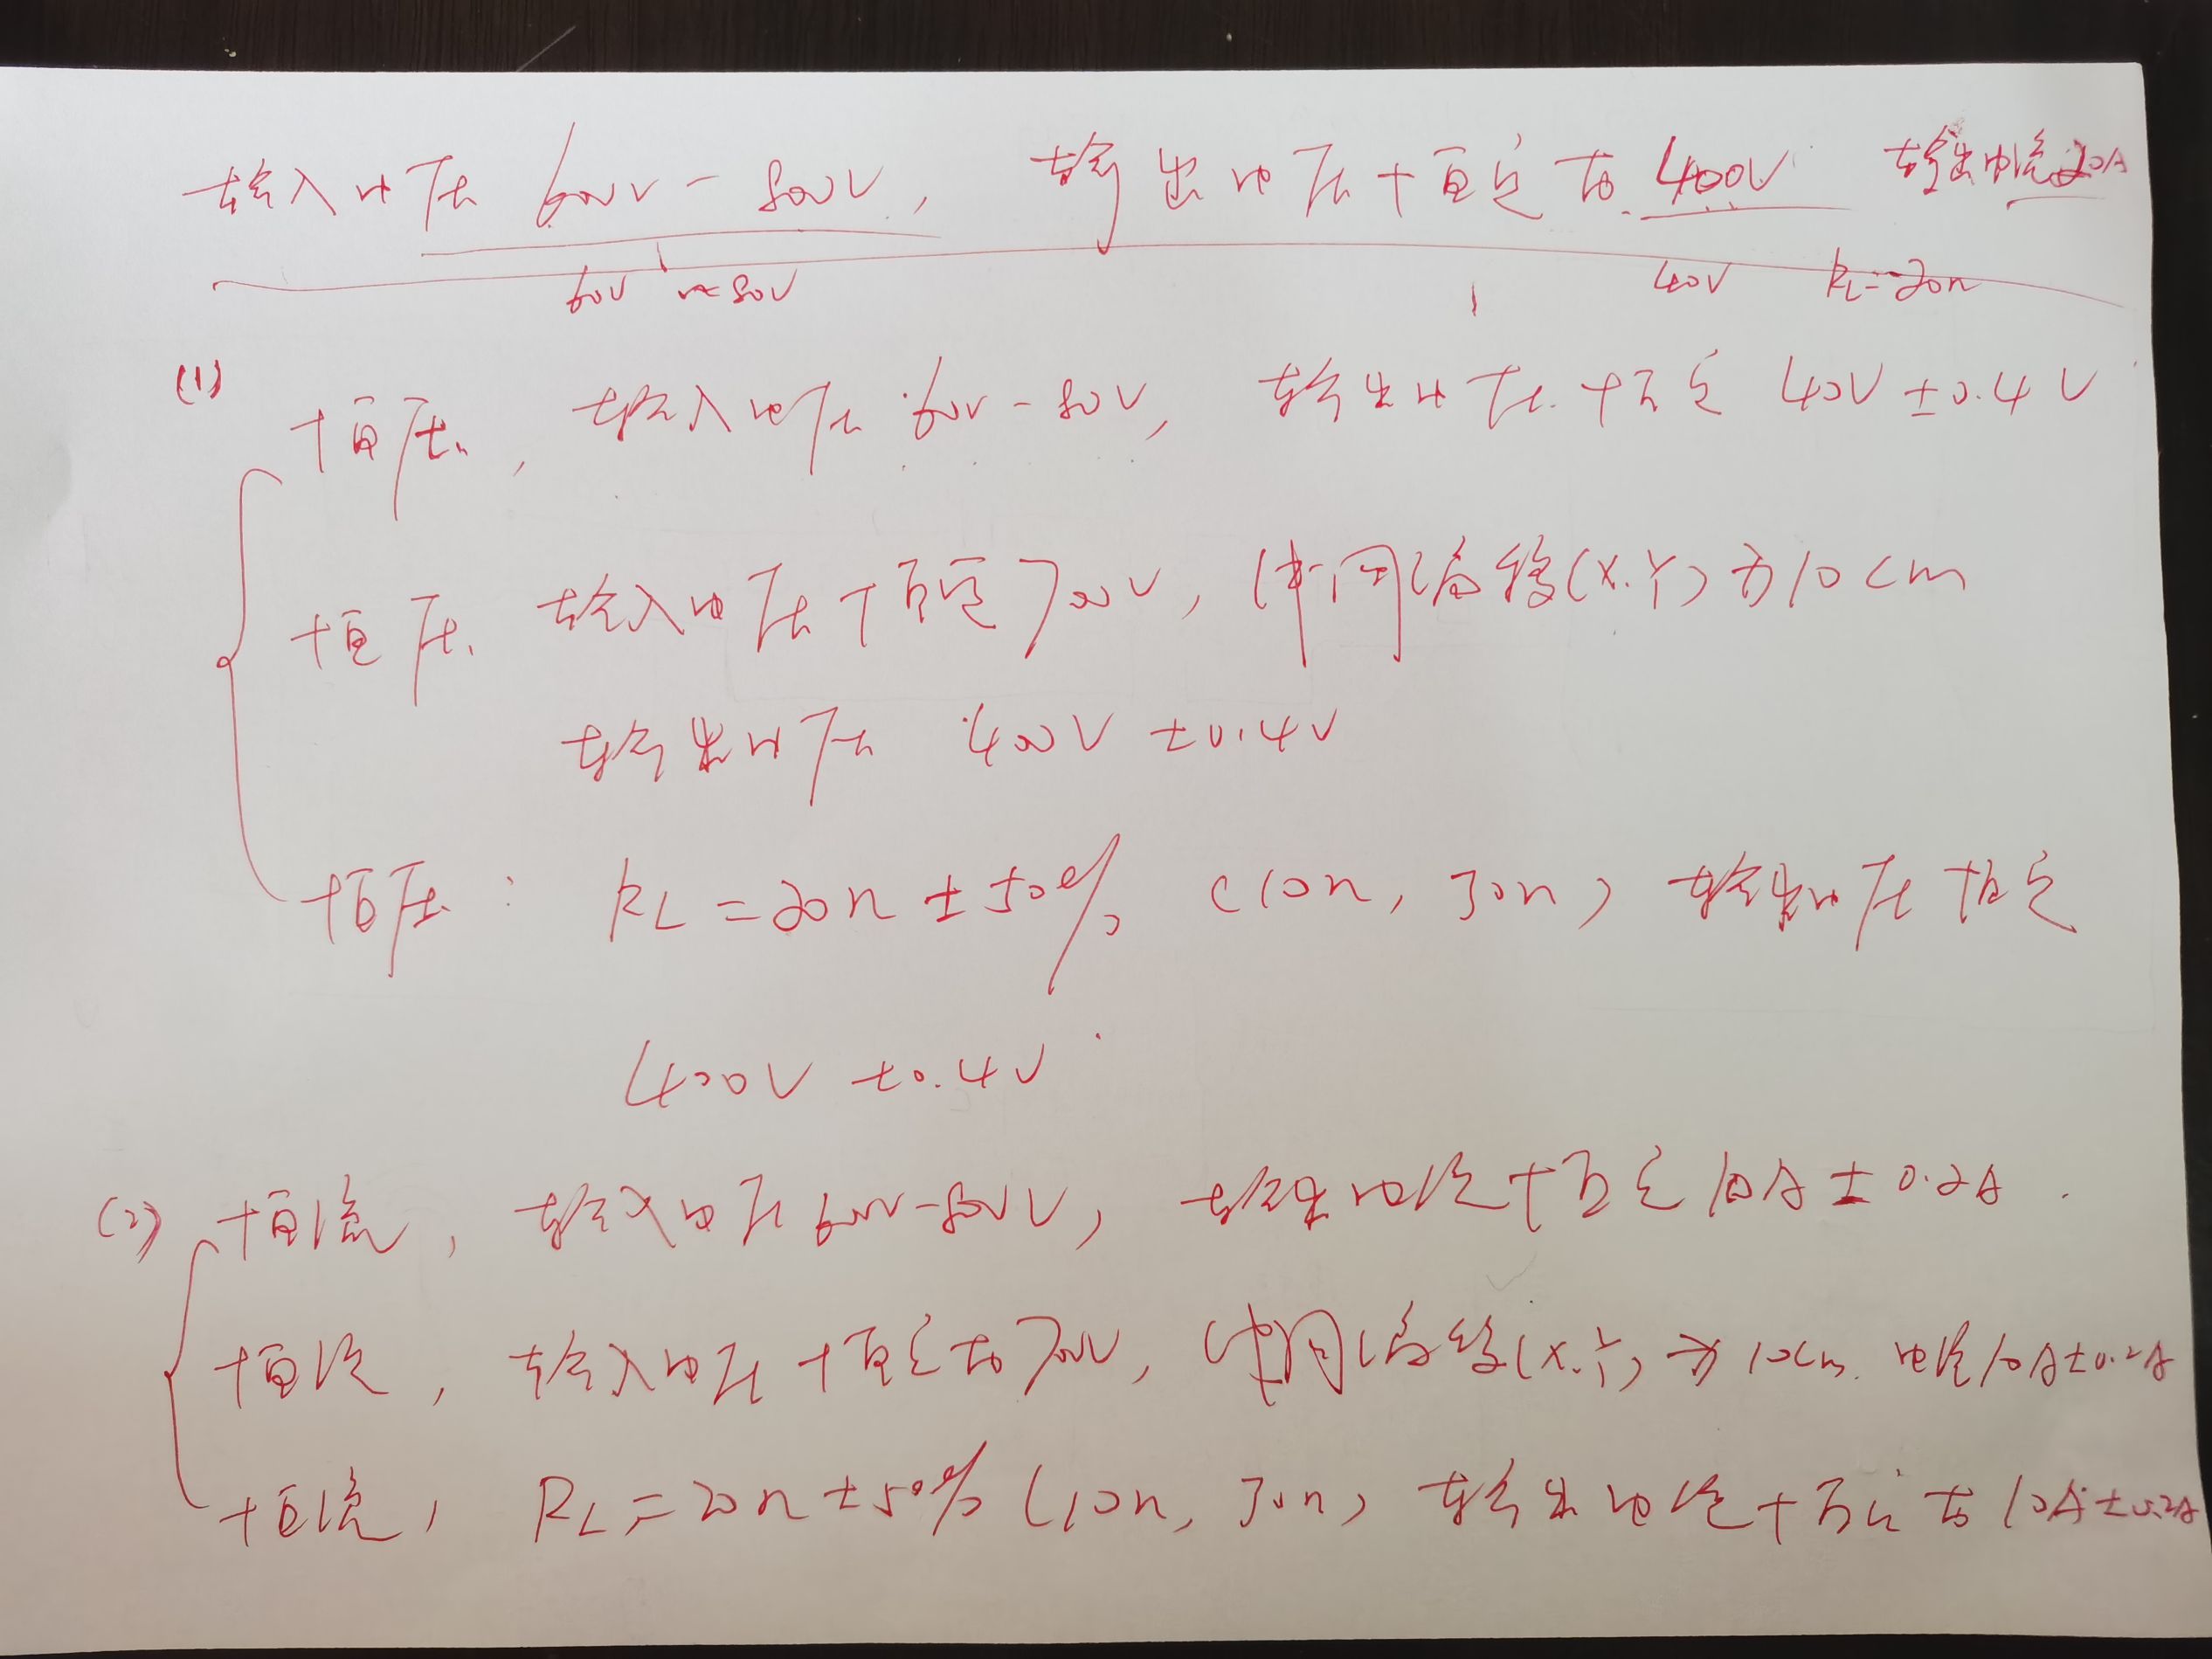 输入电压 600V-800V, 输出电压恒定在 400V 输出电流20A
60V ~ 80V 40V RL=20Ω
(1) 恒压, 输入电压 60V-80V, 输出电压恒定 40V ±0.4V
恒压. 输入电压恒定 700V, 体间偏移(X.Y)为10cm
输出电压 400V ±0.4V
恒压: RL=20Ω ±50% (10Ω, 30Ω) 输出电压恒定
400V ±0.4V
(2) 恒流, 输入电压 600V-800V, 输出电流恒定 10A ± 0.2A.
恒流, 输入电压恒定在700V, 体间偏移(X.Y)为 10cm. 电流10A±0.2A
恒流, RL=20Ω ±50% (10Ω, 30Ω) 输出电流恒定在 10A±0.2A